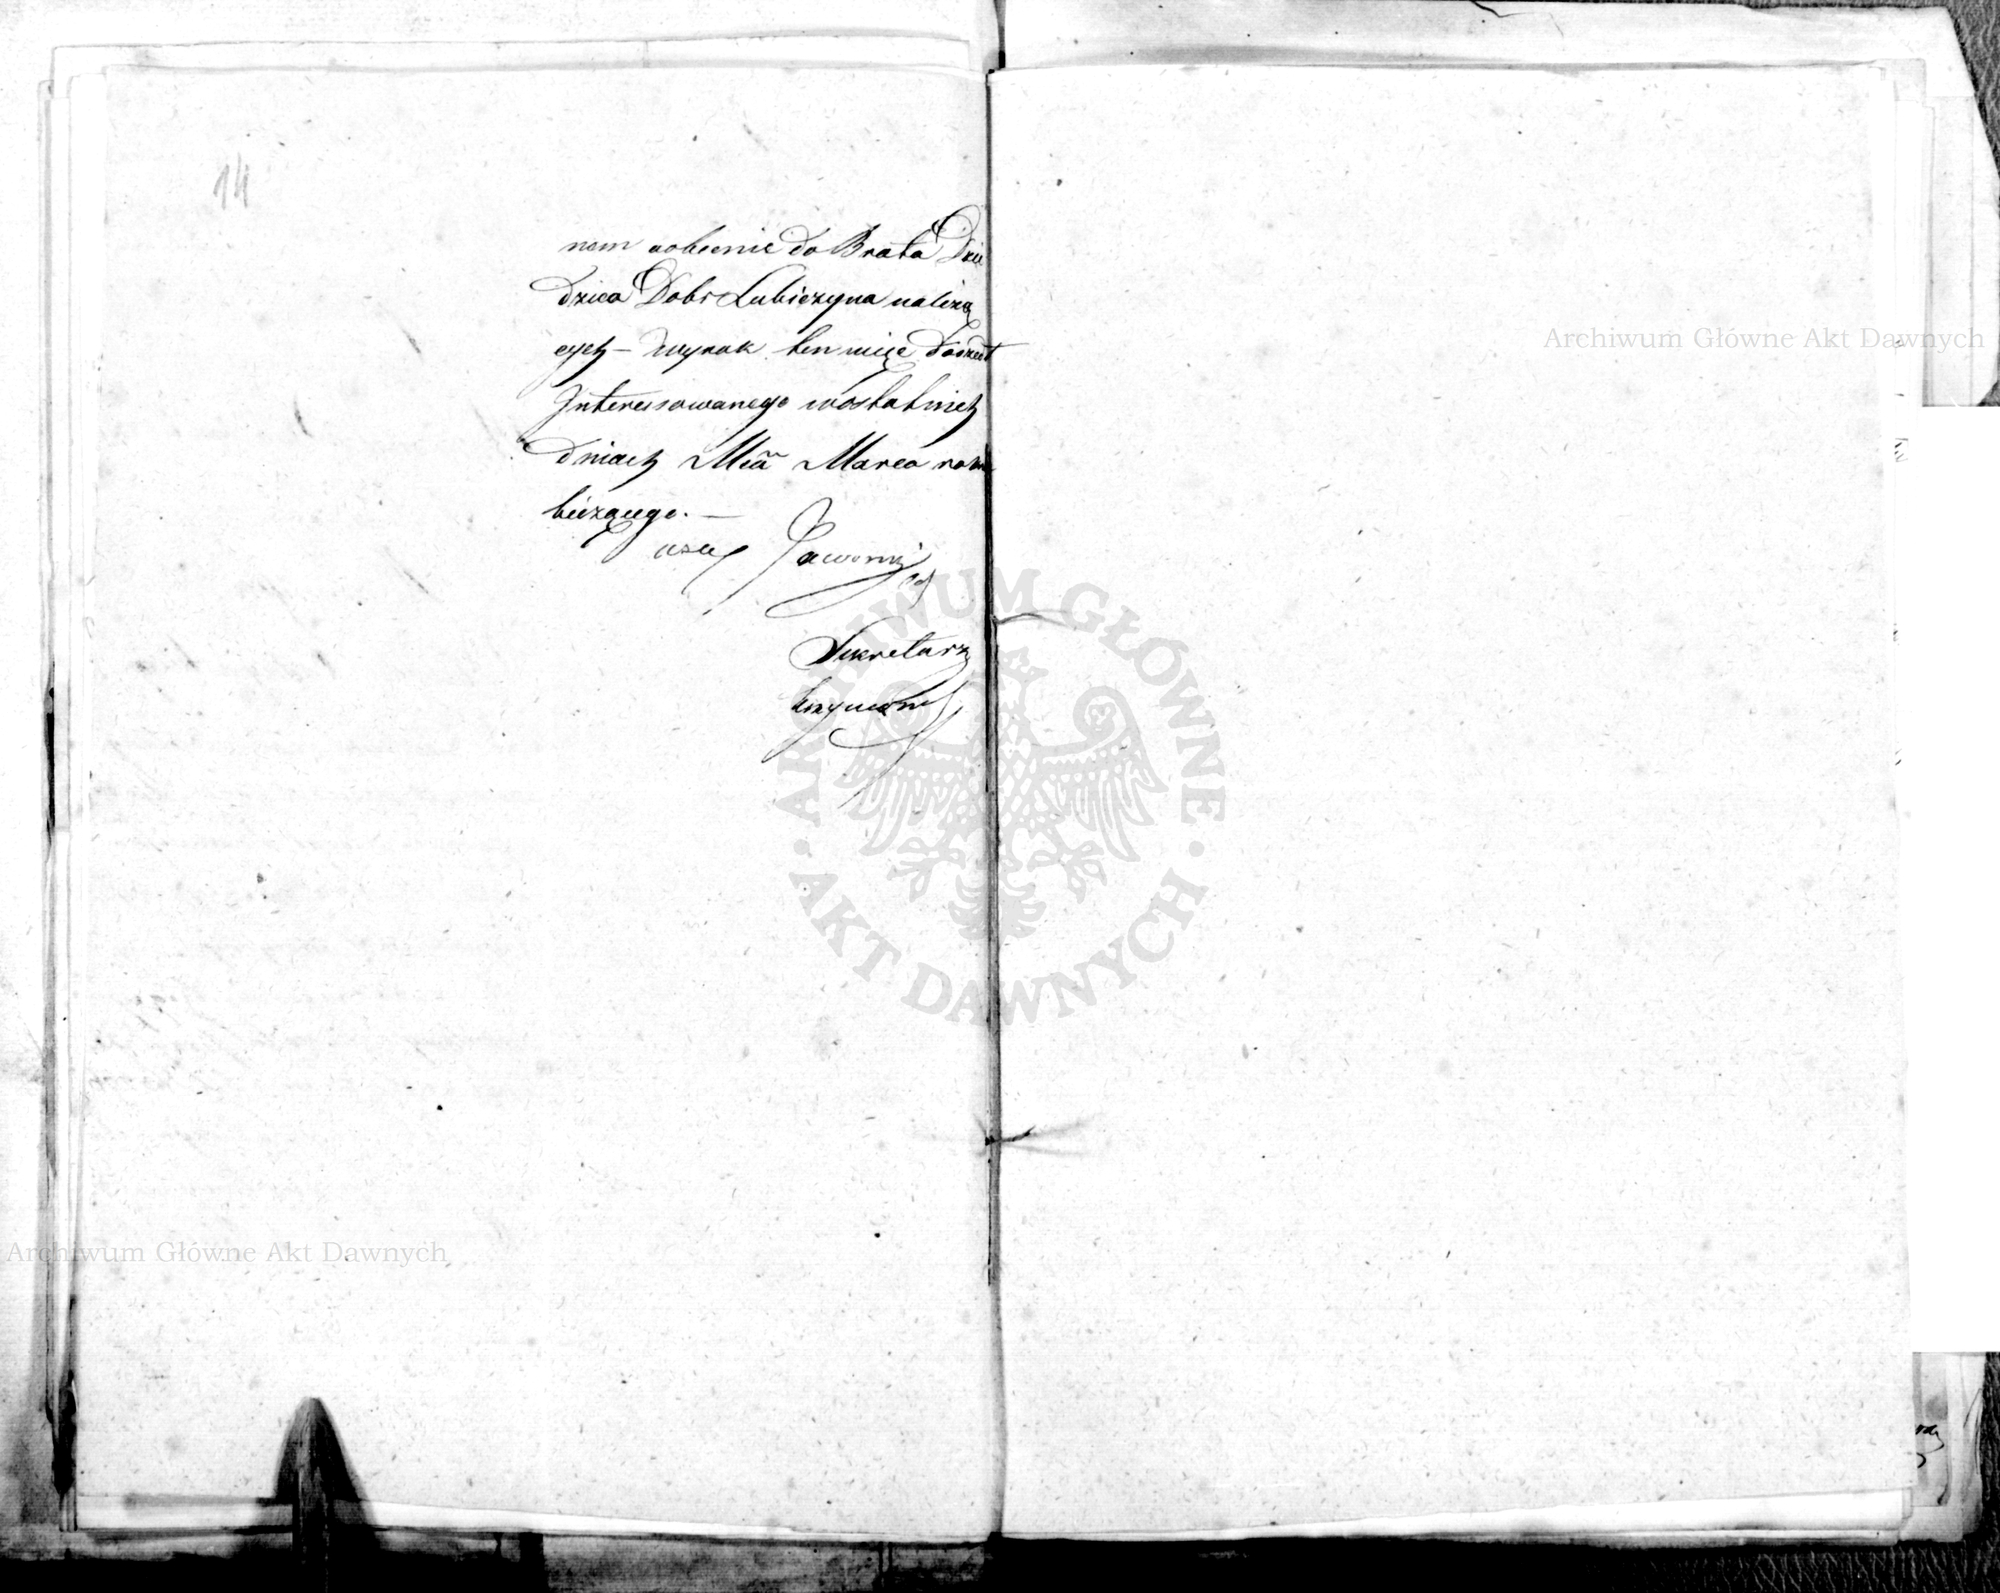 14
nem aobecnie do Brata Dzie
dzica Dobr Lubiczyna należą
cych – Wyrok ten miąc doszedł
Interessowanego wostatnich
dniach Mca Marca roku
bieżącego. —
Jaworski
Sekretarz
Archiwum Główne Akt Dawnych
ARCHIWUM GŁÓWNE
AKT DAWNYCH
Archiwum Główne Akt Dawnych